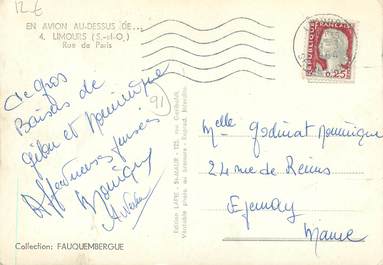 12€
EN AVION AU-DESSUS DE...
4. LIMOURS (S.-et-O.)
Rue de Paris
RÉPUBLIQUE FRANÇAISE
0,25
De gros
Baisers de
et Dominique
Affectueuses pensées
91
Edition LAPIE - St-MAUR - 125, rue Garibaldi
Véritable photo au bromure - Reprod. interdite
Melle Godinat Dominique
24 rue de Reims
Epernay
Marne
Collection: FAUQUEMBERGUE